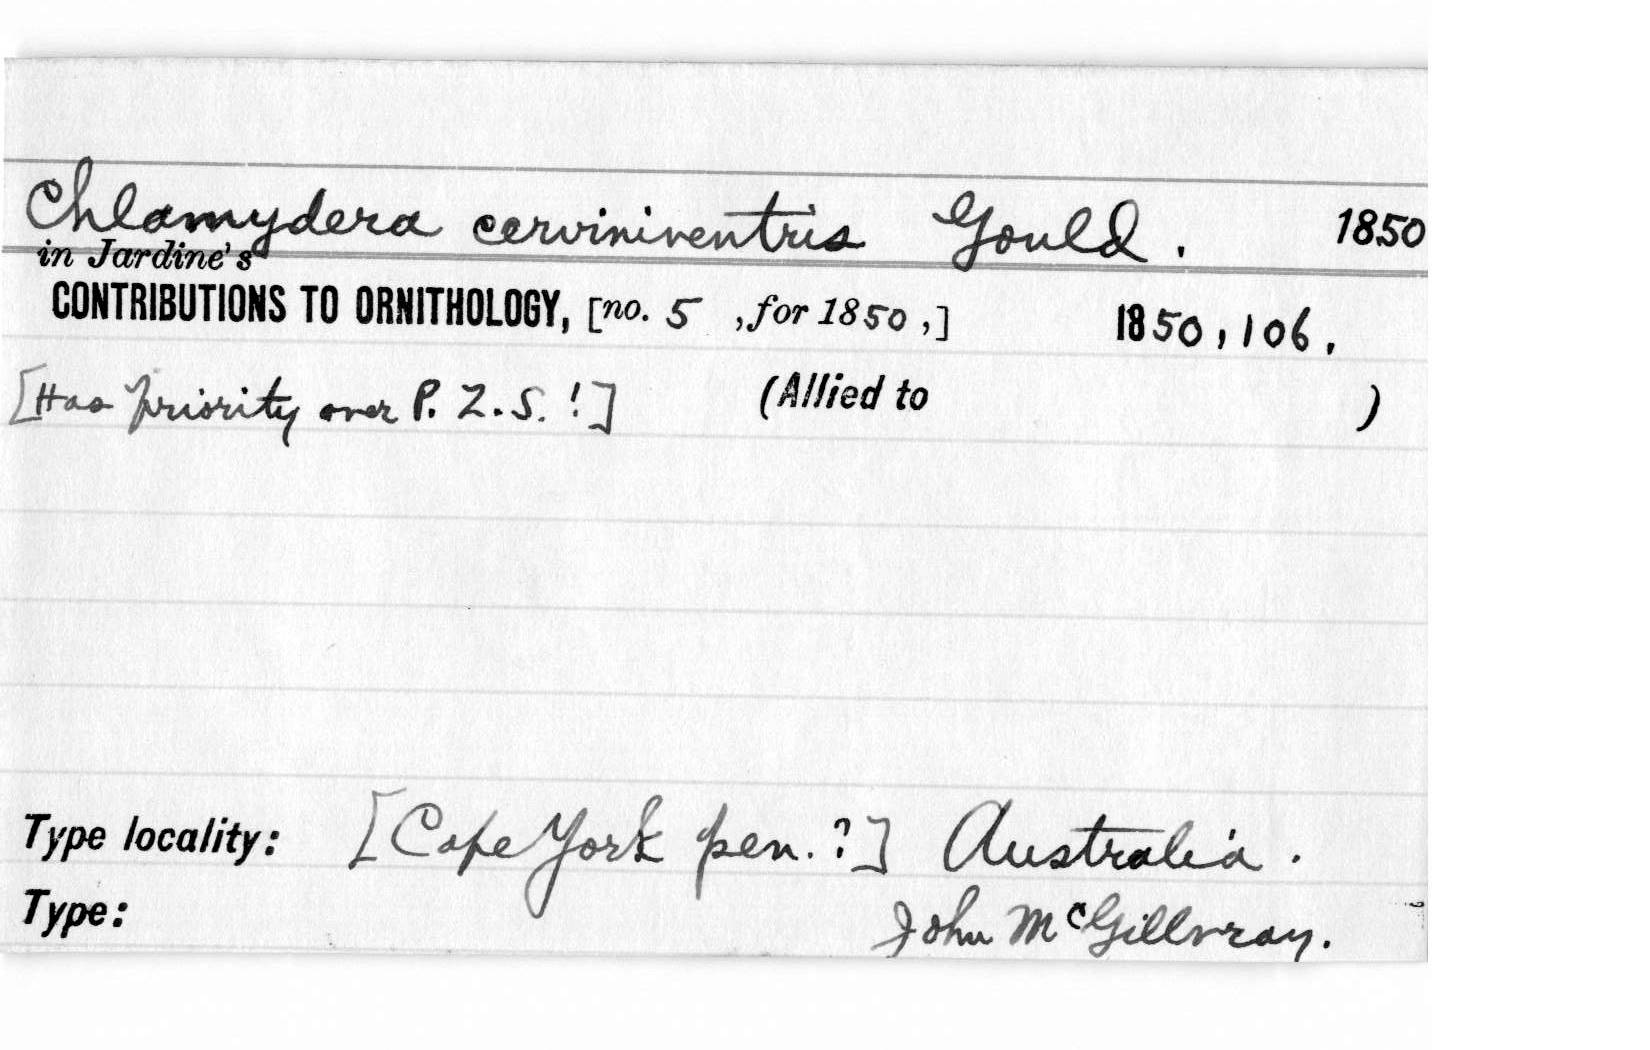 Chlamydera cerviniventris Gould. 1850
in Jardine's
CONTRIBUTIONS TO ORNITHOLOGY, [no. 5 , for 1850 ,] 1850, 106.
[Has priority over P. Z. S. !] (Allied to )
Type locality: [Cape York pen. ?] Australia.
Type: John McGillvray.